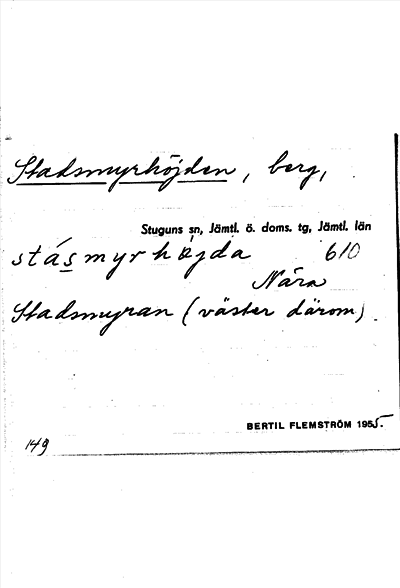 Stadsmyrhöjden, berg,
Stuguns sn, Jämtl. ö. doms. tg, Jämtl. län
stásmyrhöjda 610
Nära
Stadsmyran (väster därom).
BERTIL FLEMSTRÖM 1955.
149